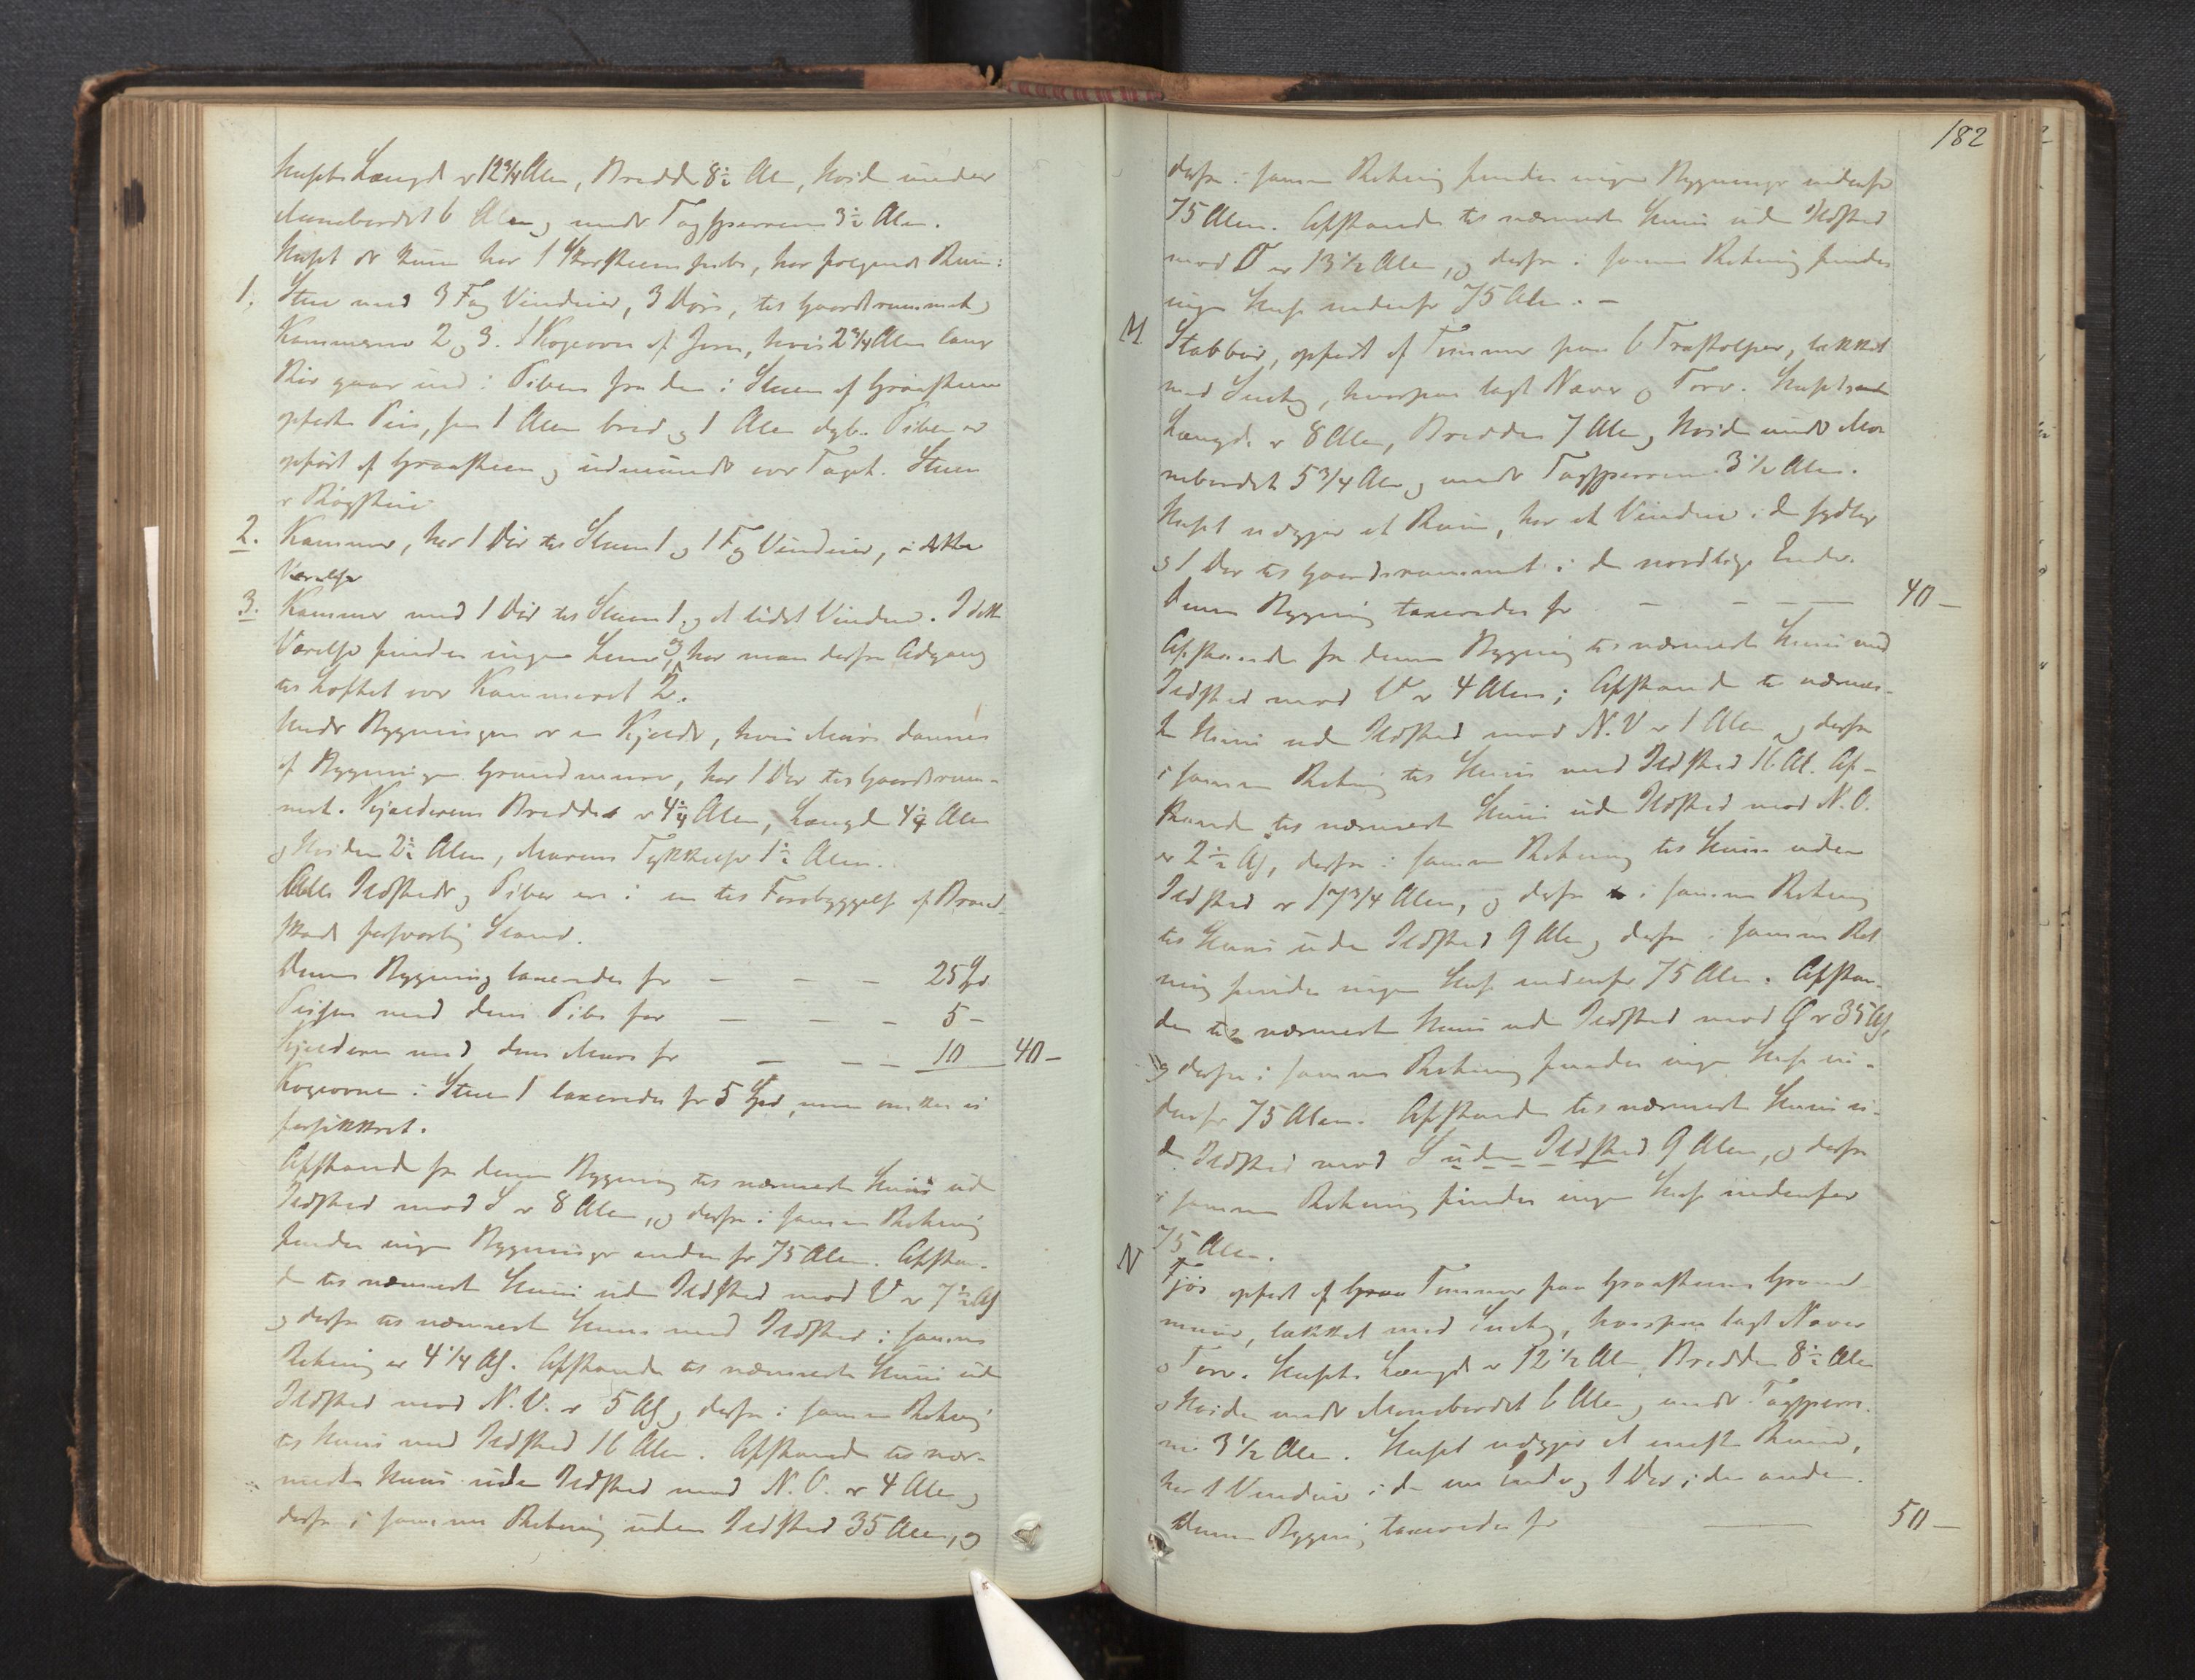 Husets Længde er 12 3/4 Alen, Bredde 8 1/2 Al, Høide under
Mønebordet 6 Alen og under Tagsperrerne 3 1/2 Alen.
Huset der kun har 1 Skorsteenspibe, har følgende Rum:
1. Stue med 3 Fag Vinduer, 3 Døre, til Gaardsrummet og
Kammerne 2 og 3. 1 Kogeovn af Jern, hvis 2 3/4 Alen lange
Rør gaar ind i Piben fra den i Stuen af Graasteen
opførte Peis, som 1 Alen bred og 1 Alen dyb. Piben er
opført af Graasteen og udmunder over Taget. Stuen
er
2. Kammer, har 1 Dør til Stuen 1 og 1 Fag Vinduer, i dette
Værelse
3. Kammer med 1 Dør til Stuen 1 og et lidet Vindue. I dette
Værelse findes ingen Lem og har man derfra Adgang
til Loftet over Kammeret 2.
Under Bygningen er en Kjelder, hvis Mure dannes
af Bygningens Grundmure, har 1 Dør til Gaardsrum-
met. Kjælderens Bredde er 4 1/4 Alen, Længde 4 1/4 Alen
og Høiden 2 1/2 Alen, Murens Tykkelse 1 1/2 Alen.
Alle Ildsteder og Piber ere i en til Forebyggelse af Brand-
skade forsvarlig Stand.
Denne Bygning taxeredes for — — — 25 Spd
Peisen med dens Pibe for — — — 5 —
Kjælderen med dens Mure for — — — 10 40 —
Kogeovnen i Stuen 1 taxeredes for 5 Spd, men ønskes ei
forsikkret.
Afstanden fra denne Bygning til nærmeste Huus uden
Ildsted mod S er 8 Alen, og derfra i samme Retning
findes ingen Bygninger indenfor 75 Alen. Afstan-
den til nærmeste Huus uden Ildsted mod V er 7 1/2 Al
og derfra til nærmeste Huus med Ildsted i samme
Retning er 4 1/4 Al. Afstanden til nærmeste Huus uden
Ildsted mod N.V. er 5 Al og derfra i samme Retning
til Huus med Ildsted 16 Alen. Afstanden til nær-
meste Huus uden Ildsted mod N.O. er 4 Alen og
derfra i samme Retning uden Ildsted 35 Alen, og
182
derfra i samme Retning findes ingen Bygninger indenfor
75 Alen. Afstanden til nærmeste Huus uden Ildsted
mod O er 13 1/2 Alen, og derfra i samme Retning findes
ingen Huse indenfor 75 Alen. —
M Stabbur, opført af Tømmer paa 6 Træstolper, tækket
med Sutag, hvorpaa lagt Næver og Torv. Husets
Længde er 8 Alen, Bredden 7 Alen og Høiden under Mø-
nebordet 5 3/4 Alen og under Tagsperrerne 3 1/2 Alen.
Huset udgjør et Rum, har et Vindue i den sydlige
og 1 Dør til Gaardsrummet i den nordlige Ende.
Denne Bygning taxeredes for — — — — 40 —
Afstanden fra denne Bygning til nærmeste Huus med
Ildsted mod V er 4 Alen; Afstanden til nærmes-
te Huus uden Ildsted mod N.V er 1 Alen og derfra
i samme Retning til Huus med Ildsted 16 Al. Af-
standen til nærmeste Huus uden Ildsted mod N.O.
er 2 1/2 Al, derfra i samme Retning til Huus uden
Ildsted er 17 3/4 Alen, og derfra i samme Retning
til Huus uden Ildsted 9 Alen og derfra i samme Ret
ning findes ingen Huse indenfor 75 Alen. Afstan-
den til nærmeste Huus uden Ildsted mod O er 35 Al,
og derfra i samme Retning findes ingen Huse in-
denfor 75 Alen. Afstanden til nærmeste Huus u-
den Ildsted mod S uden Ildsted 9 Alen, og derfra
i samme Retning findes ingen Huse indenfor
75 Alen.
N Fjøs opført af Graa Tømmer paa Graasteens Grund
muur, tækket med Sutag, hvorpaa lagt Næver
og Torv. Husets Længde er 12 1/2 Al, Bredden 8 1/2 Alen
og Høiden under Mønebordet 6 Alen og under Tagsperre-
ne 3 1/2 Alen. Huset udgjør et eneste Rum,
har 1 Vindue i den ene Ende og 1 Dør i den anden.
Denne Bygning taxeredes for — 50 —